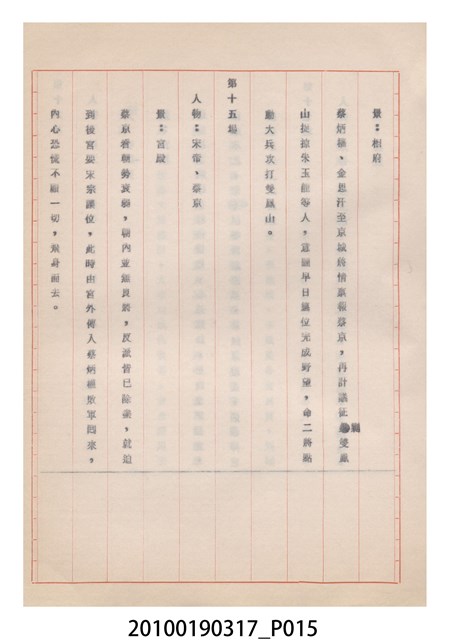 景：相府
蔡炳權、金恩汗至京城將情稟報蔡京，再計議征雙鳳
山捉捡朱玉龍等人，意圖早日篡位完成野望，命二將點
齊大兵攻打雙鳳山。
第十五場
人物：宋帝、蔡京
景：宮殿
蔡京看朝勢衰弱，朝內並無良將，反派皆已除盡，就迫
到後宮挾宋帝讓位，此時由宮外傳入蔡炳權敗軍回來，
內心恐慌不顧一切，棄身而去。
20100190317_P015